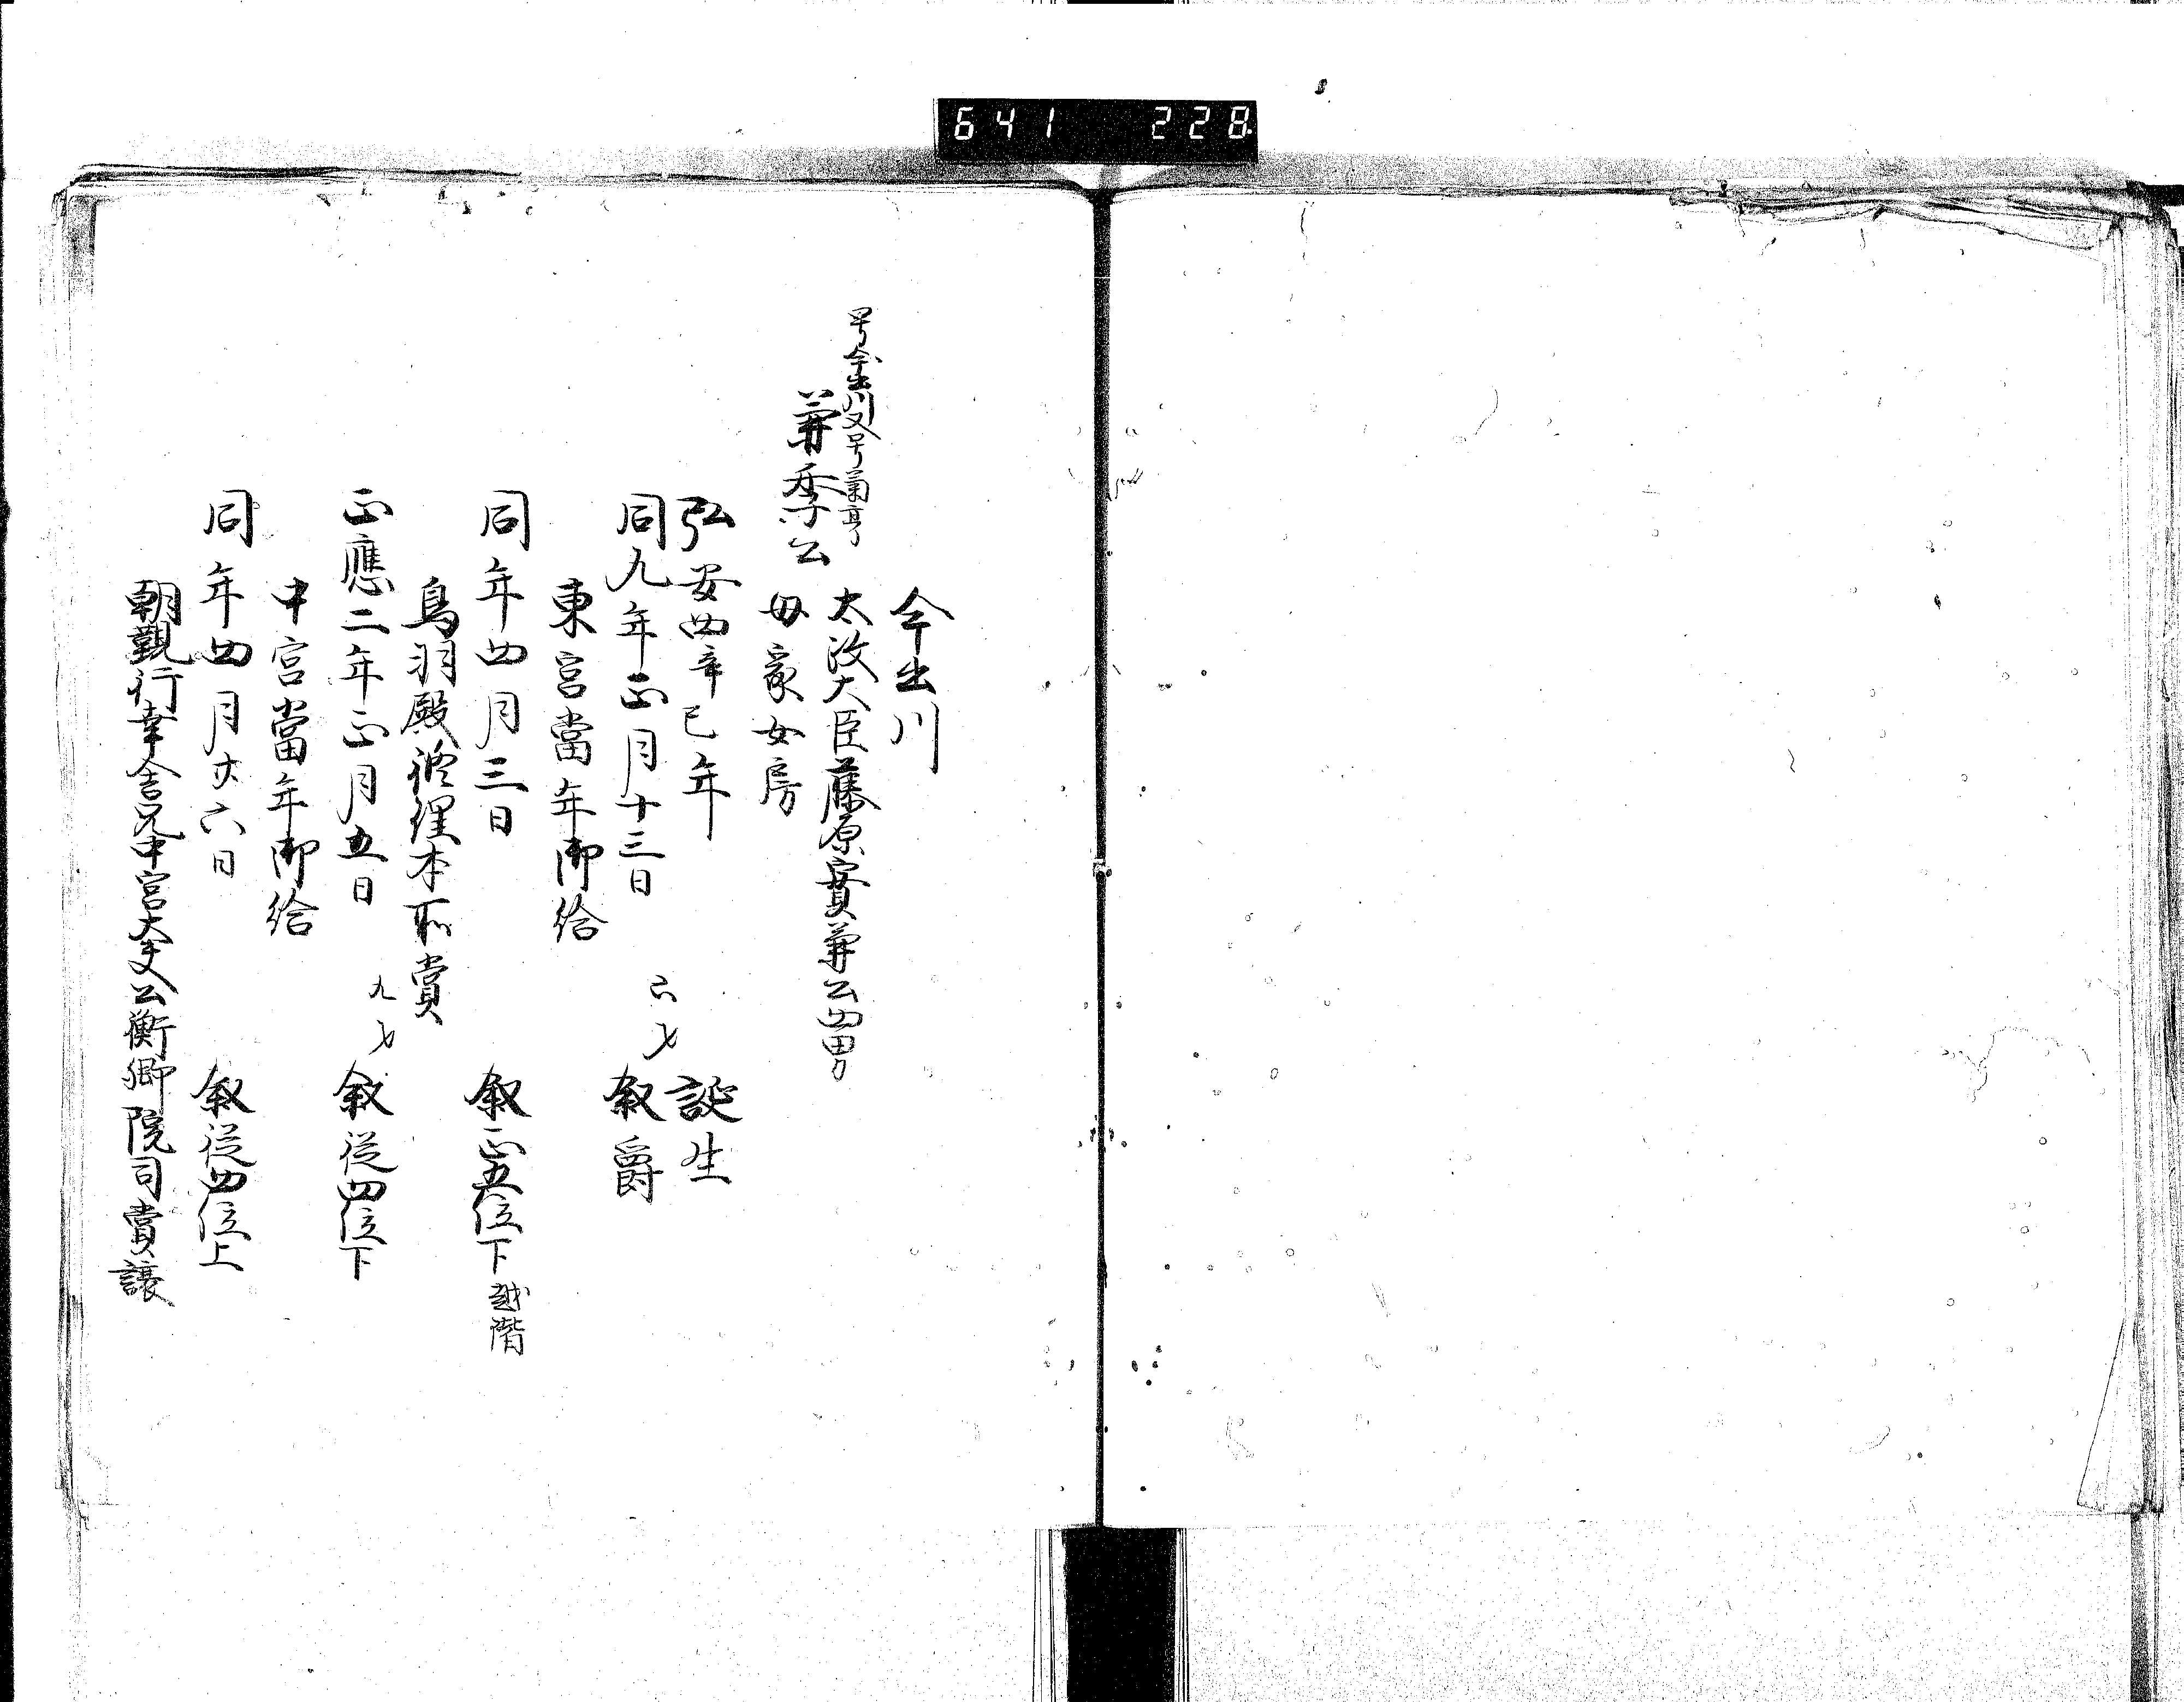 641 228
今出川
号今出川又号菊亭
兼季公
太政大臣藤原實兼公四男
母家女房
弘安四辛巳年 誕生
同九年正月十三日 六才 叙爵
東宮當年御給
同年四月三日 叙正五位下 越階
鳥羽殿修理本所賞
正應二年正月五日 九才 叙従四位下
中宮當年御給
同年四月廿六日 叙従四位上
朝覲行幸舎兄中宮大夫公衡卿院司賞譲